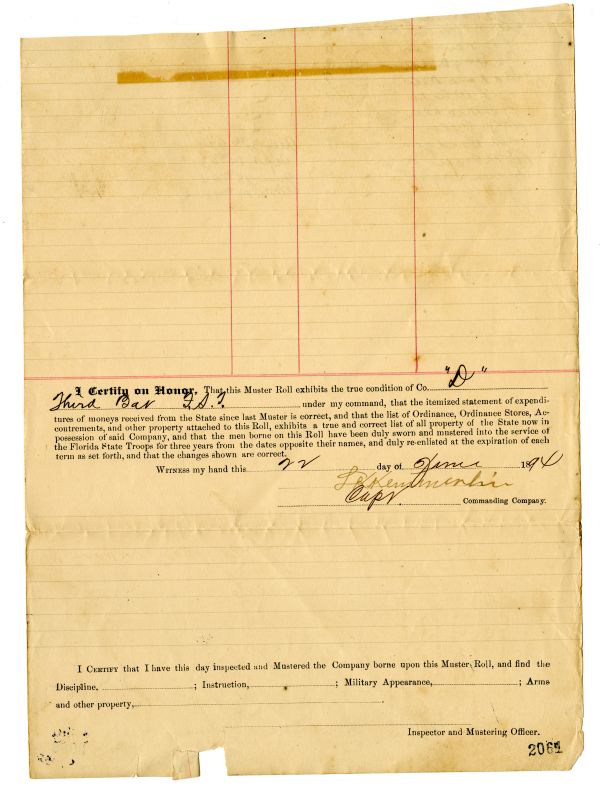 I Certify on Honor. That this Muster Roll exhibits the true condition of Co. "D"
Third Bat F.S.T. under my command, that the itemized statement of expendi-
tures of moneys received from the State since last Muster is correct, and that the list of Ordinance, Ordinance Stores, Ac-
coutrements, and other property attached to this Roll, exhibits a true and correct list of all property of the State now in
possession of said Company, and that the men borne on this Roll have been duly sworn and mustered into the service of
the Florida State Troops for three years from the dates opposite their names, and duly re-enlisted at the expiration of each
term as set forth, and that the changes shown are correct.
WITNESS my hand this 22 day of June 1894
Capt. Commanding Company.
I CERTIFY that I have this day inspected and Mustered the Company borne upon this Muster Roll, and find the
Discipline, ; Instruction, ; Military Appearance, ; Arms
and other property,
Inspector and Mustering Officer.
2061